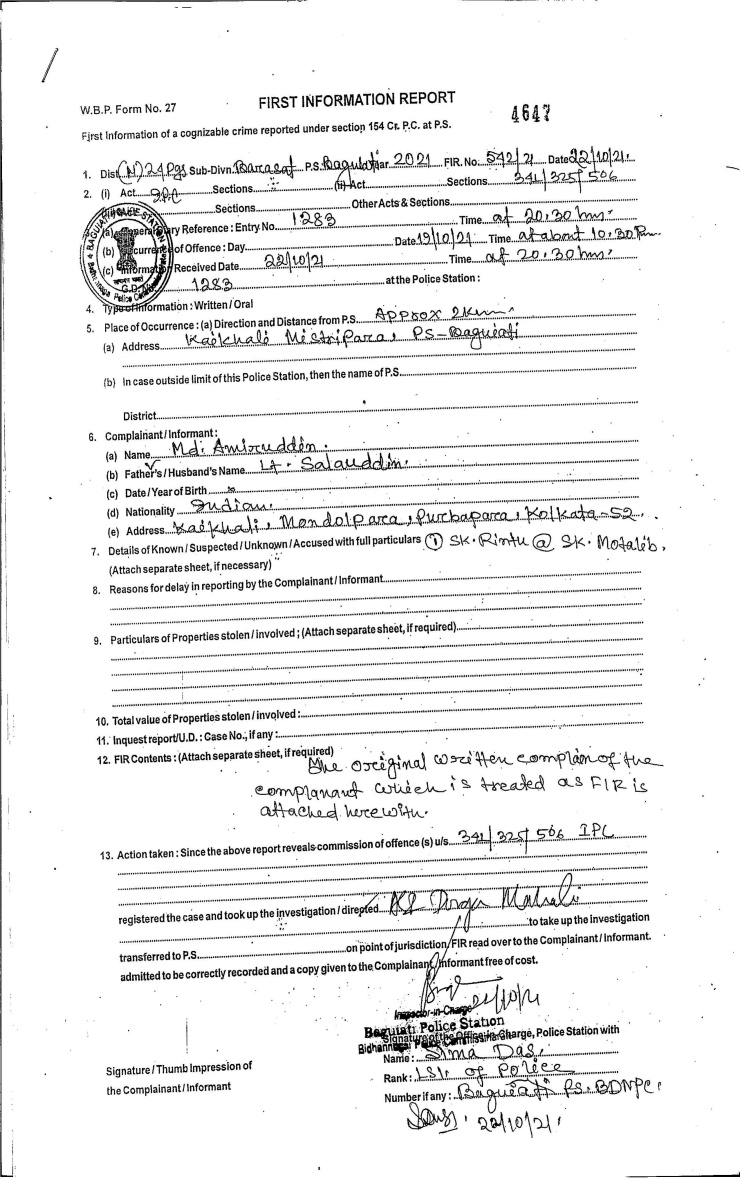 W.B.P. Form No. 27
FIRST INFORMATION REPORT
4647
First Information of a cognizable crime reported under section 154 Cr. P.C. at P.S.
1. Dist (N) 24 Pgs Sub-Divn. Barasat P.S. Baguiati Year 2021 FIR. No. 542/21 Date 22/10/21.
2. (i) Act IPC Sections (ii) Act Sections 341/325/506
Sections Other Acts & Sections
(a) General Diary Reference : Entry No. 1283 Time at 20:30 hrs.
(b) Occurrence of Offence : Day Date 19/10/21 Time at about 10:30 Pm.
(c) Information Received Date 22/10/21 Time at 20:30 hrs.
G.D. No. 1283 at the Police Station :
4. Type of Information : Written / Oral
5. Place of Occurrence : (a) Direction and Distance from P.S. Approx 2 km.
(a) Address Kaikhali Mistripara, PS-Baguiati
(b) In case outside limit of this Police Station, then the name of P.S.
District
6. Complainant / Informant :
(a) Name Md. Amiruddin.
(b) Father's / Husband's Name Lt. Salauddin.
(c) Date / Year of Birth
(d) Nationality Indian.
(e) Address Kaikhali, Mondolpara, Purbapara, Kolkata-52.
7. Details of Known / Suspected / Unknown / Accused with full particulars (1) SK. Rintu @ SK. Motaleb.
(Attach separate sheet, if necessary)
8. Reasons for delay in reporting by the Complainant / Informant
9. Particulars of Properties stolen / involved ; (Attach separate sheet, if required)
10. Total value of Properties stolen / involved :
11. Inquest report/U.D. : Case No., if any :
12. FIR Contents : (Attach separate sheet, if required)
The original written complain of the
complanant which is treated as FIR is
attached herewith.
13. Action taken : Since the above report reveals commission of offence (s) u/s. 341/325/506 IPC
registered the case and took up the investigation / directed
to take up the investigation
transferred to P.S. on point of jurisdiction, FIR read over to the Complainant / Informant.
admitted to be correctly recorded and a copy given to the Complainant / Informant free of cost.
22/10/21
Inspector-in-Charge
Baguiati Police Station
Signature of the Officer-in-Charge, Police Station with
Name : Sima Das.
Signature / Thumb Impression of
the Complainant / Informant
Rank : of Police
Number if any : Baguiati PS. BDNPC.
22/10/21.